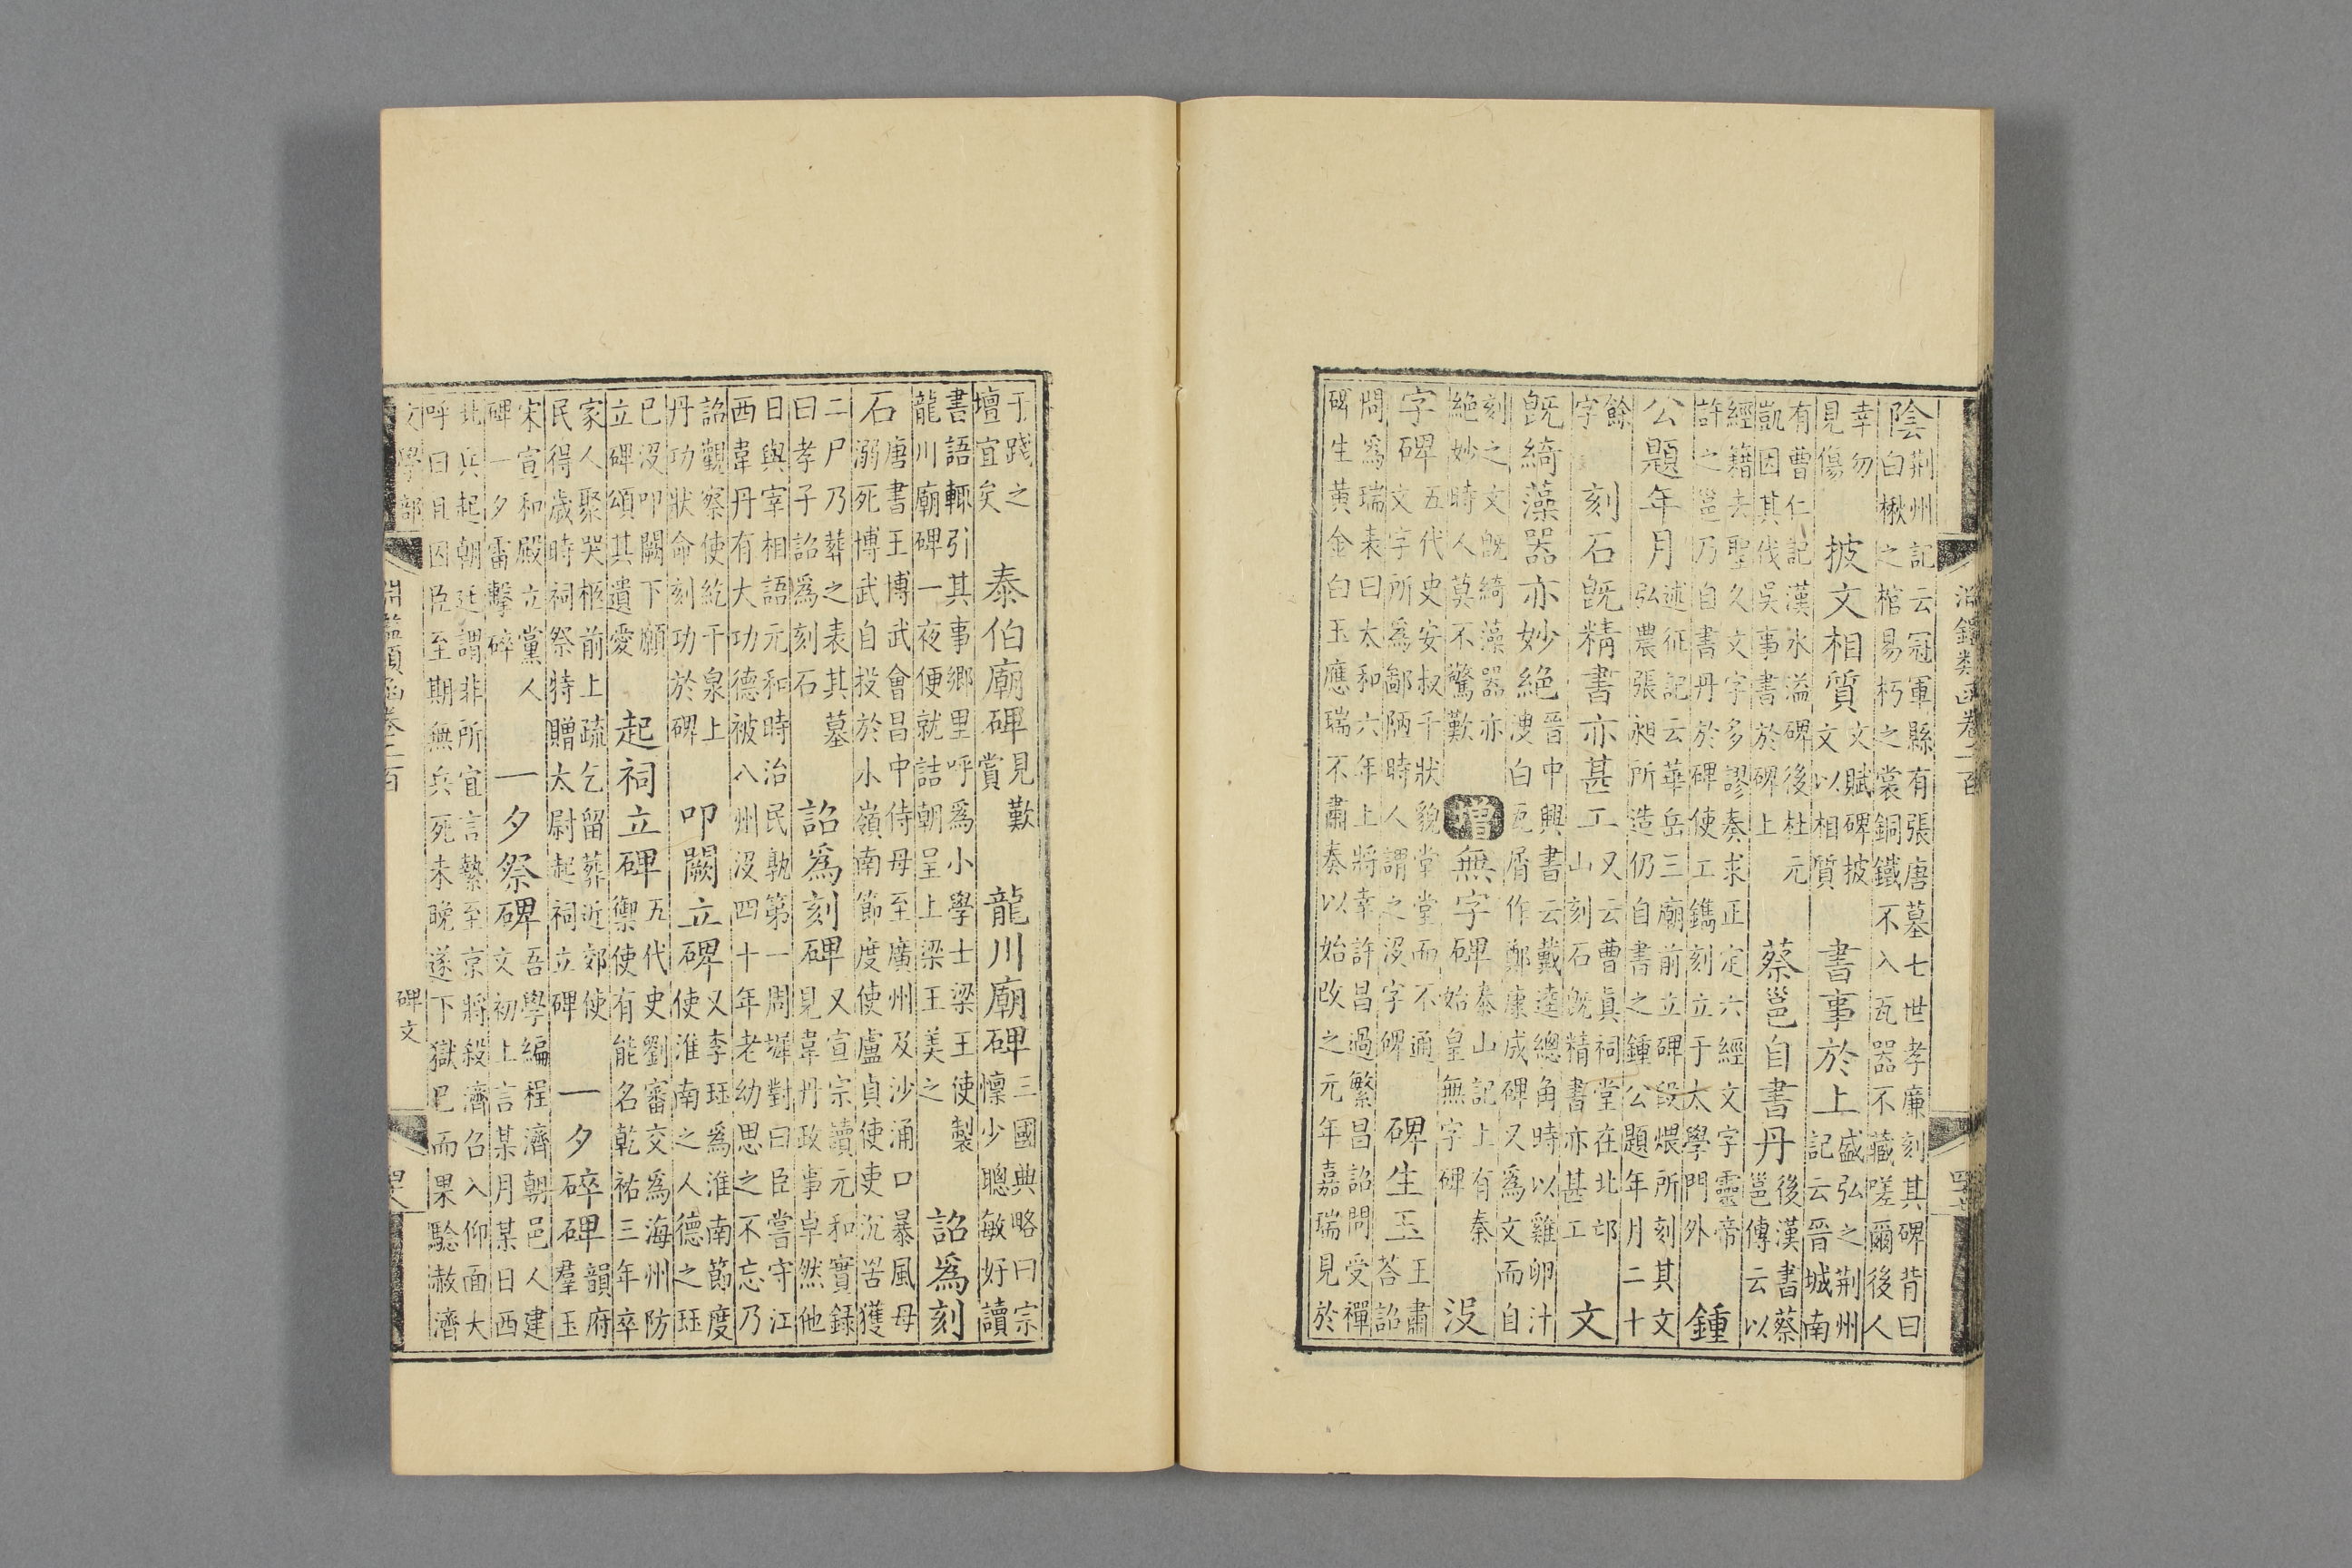 淵鑑類函卷二百
陰
荆州記云冠軍縣有張唐墓七世孝廉刻其碑背曰
白楸之棺易朽之裳銅鐵不入瓦器不藏嗟爾後人
幸勿
見傷
披文相質
文賦碑披
文以相質
書事於上
盛弘之荆州
記云晉城南
有曹仁記漢水溢碑後杜元
凱因其伐吳事書於碑上
蔡邕自書丹
後漢書蔡
邕傳云以
經籍去聖久文字多謬奏求正定六經文字靈帝
許之邕乃自書丹於碑使工鐫刻立于太學門外
鍾
公題年月
述征記云華岳三廟前立碑段煨所刻其文
弘農張昶所造仍自書之鍾公題年月二十
餘
字
刻石旣精書亦甚工
又云曹眞祠堂在北邙
山刻石旣精書亦甚工
文
旣綺藻器亦妙絶
晉中興書云戴逵總角時以雞卵汁
溲白瓦屑作鄭康成碑又爲文而自
刻之文旣綺藻器亦
絶妙時人莫不驚歎
增
無字碑
泰山記上有秦
始皇無字碑
沒
字碑
五代史安叔千狀貌堂堂而不通
文字所爲鄙陋時人謂之沒字碑
碑生玉
王肅
荅詔
問爲瑞表曰太和六年上將幸許昌過繁昌詔問受禪
碑生黃金白玉應瑞不肅奏以始改之元年嘉瑞見於
于踐之
壇宜矣
泰伯廟碑
見歎
賞
龍川廟碑
三國典略曰宗
懍少聰敏好讀
書語輒引其事鄉里呼爲小學士梁王使製
龍川廟碑一夜便就詰朝呈上梁王美之
詔爲刻
石
唐書王博武會昌中侍母至廣州及沙涌口暴風母
溺死博武自投於小嶺南節度使盧貞使吏沉罟獲
二尸乃葬之表其墓
曰孝子詔爲刻石
詔爲刻碑
又宣宗讀元和實錄
見韋丹政事卓然他
日與宰相語元和時治民孰第一周墀對曰臣嘗守江
西韋丹有大功德被八州沒四十年老幼思之不忘乃
詔觀察使紇干泉上
丹功狀命刻功於碑
叩闕立碑
又李珏爲淮南節度
使淮南之人德之珏
已沒叩闕下願
立碑頌其遺愛
起祠立碑
五代史劉審交爲海州防
禦使有能名乾祐三年卒
家人聚哭柩前上疏乞留葬近郊使
民得歲時祠祭特贈太尉起祠立碑
一夕碎碑
韻府
羣玉
宋宣和殿立黨人
碑一夕雷擊碎
一夕祭碑
吾學編程濟朝邑人建
文初上言某月某日西
北兵起朝廷謂非所宜言縶至京將殺濟召入仰面大
呼曰且因臣至期無兵死未晚遂下獄已而果驗赦濟
文學部
淵鑑類函卷二百
碑文